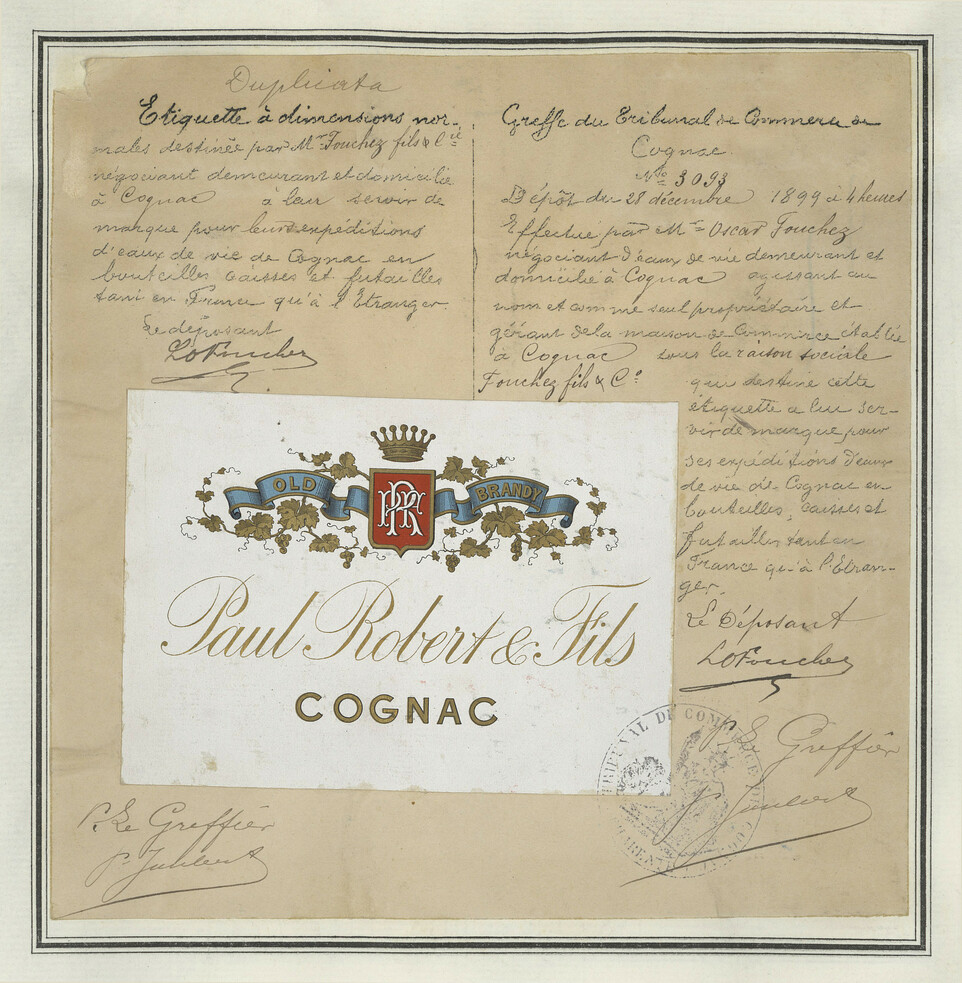 Duplicata
Etiquette à dimensions nor-
males destinée par Mr Fouchez fils & Cie
négociant demeurant et domicilié
à Cognac à leur servir de
marque pour leurs expéditions
d'eaux de vie de Cognac en
bouteilles caisses et futailles
tant en France qu'à l'Etranger.
Le déposant
LOFouchez
Greffe du Tribunal de Commerce de
Cognac
No 3093
Dépôt du 28 décembre 1899 à 4 heures
Effectué par Mr Oscar Fouchez
négociant d'eaux de vie demeurant et
domicilié à Cognac agissant au
nom et comme seul propriétaire et
gérant de la maison de Commerce établie
à Cognac sous la raison sociale
Fouchez fils & Co
qui destine cette
étiquette a lui ser-
vir de marque pour
ses expéditions d'eaux
de vie de Cognac en
bouteilles, caisses et
futailles tant en
France qu'à l'Etran-
ger.
Le Déposant
LOFouchez
OLD
PR
BRANDY
Paul Robert & Fils
COGNAC
TRIBUNAL DE COMMERCE DE COGNAC
P. Le Greffier
P. Le Greffier